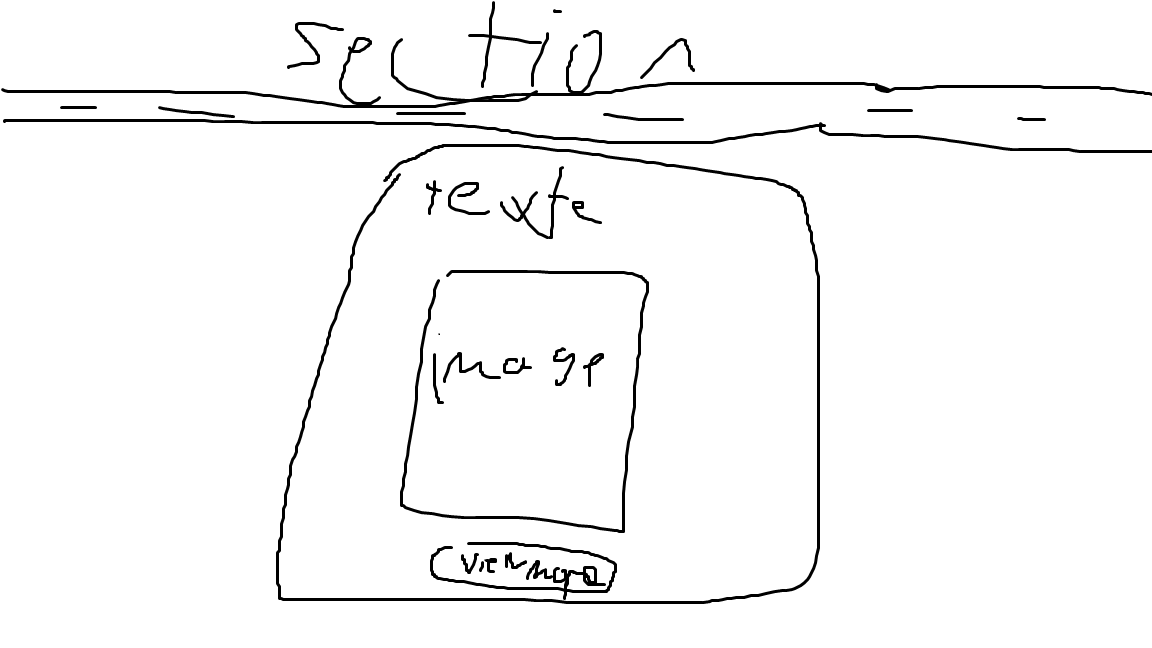 section
texte
image
view more